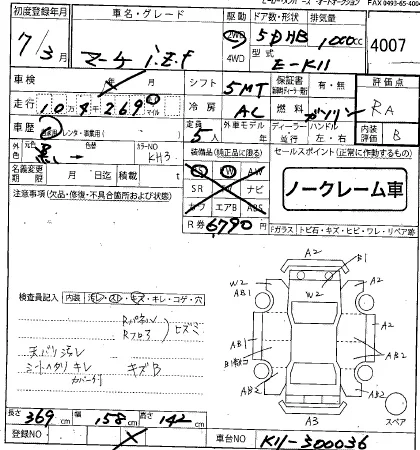 FAX 0493-65-400
初度登録年月 車名・グレード 駆動 ドア数・形状 排気量
7/3月 マーチ i.z.f 2WD 4WD 5DHB 1000cc 4007
型式 E-K11
車検 年 月 シフト 5MT 保証書 有・無 評価点
走行 10万4269 マイル 冷房 AC 燃料 ガソリン RA
車歴 自家用・レンタ・事業用( ) 定員 5人 外車モデル 年 ディーラー・並行 ハンドル 左・右 内装評価 B
外色 元色 黒 色替 カラーNO KH3 装備品(純正品に限る) セールスポイント(正常に作動するもの)
名義変更期限 月 日迄 積載 t SR ナビ ノークレーム車
注意事項(欠品・修復・不具合箇所および状態) エアB ABS
R券 6790円 Fガラス トビ石・キズ・ヒビ・ワレ・リペア
A2
B1
W2 A2
AB1 W2
検査員記入 内装 汚レ・スレ・キズ・キレ・コゲ・穴
Rパネル
Rフロア ヒズミ
天バリ汚レ
シートヘタリ キレ キズB
カバー付
AB1 A2
AB2 AB2
A3 スペア
長さ 369cm 幅 158cm 高さ 142cm
登録NO 車台NO K11-300036